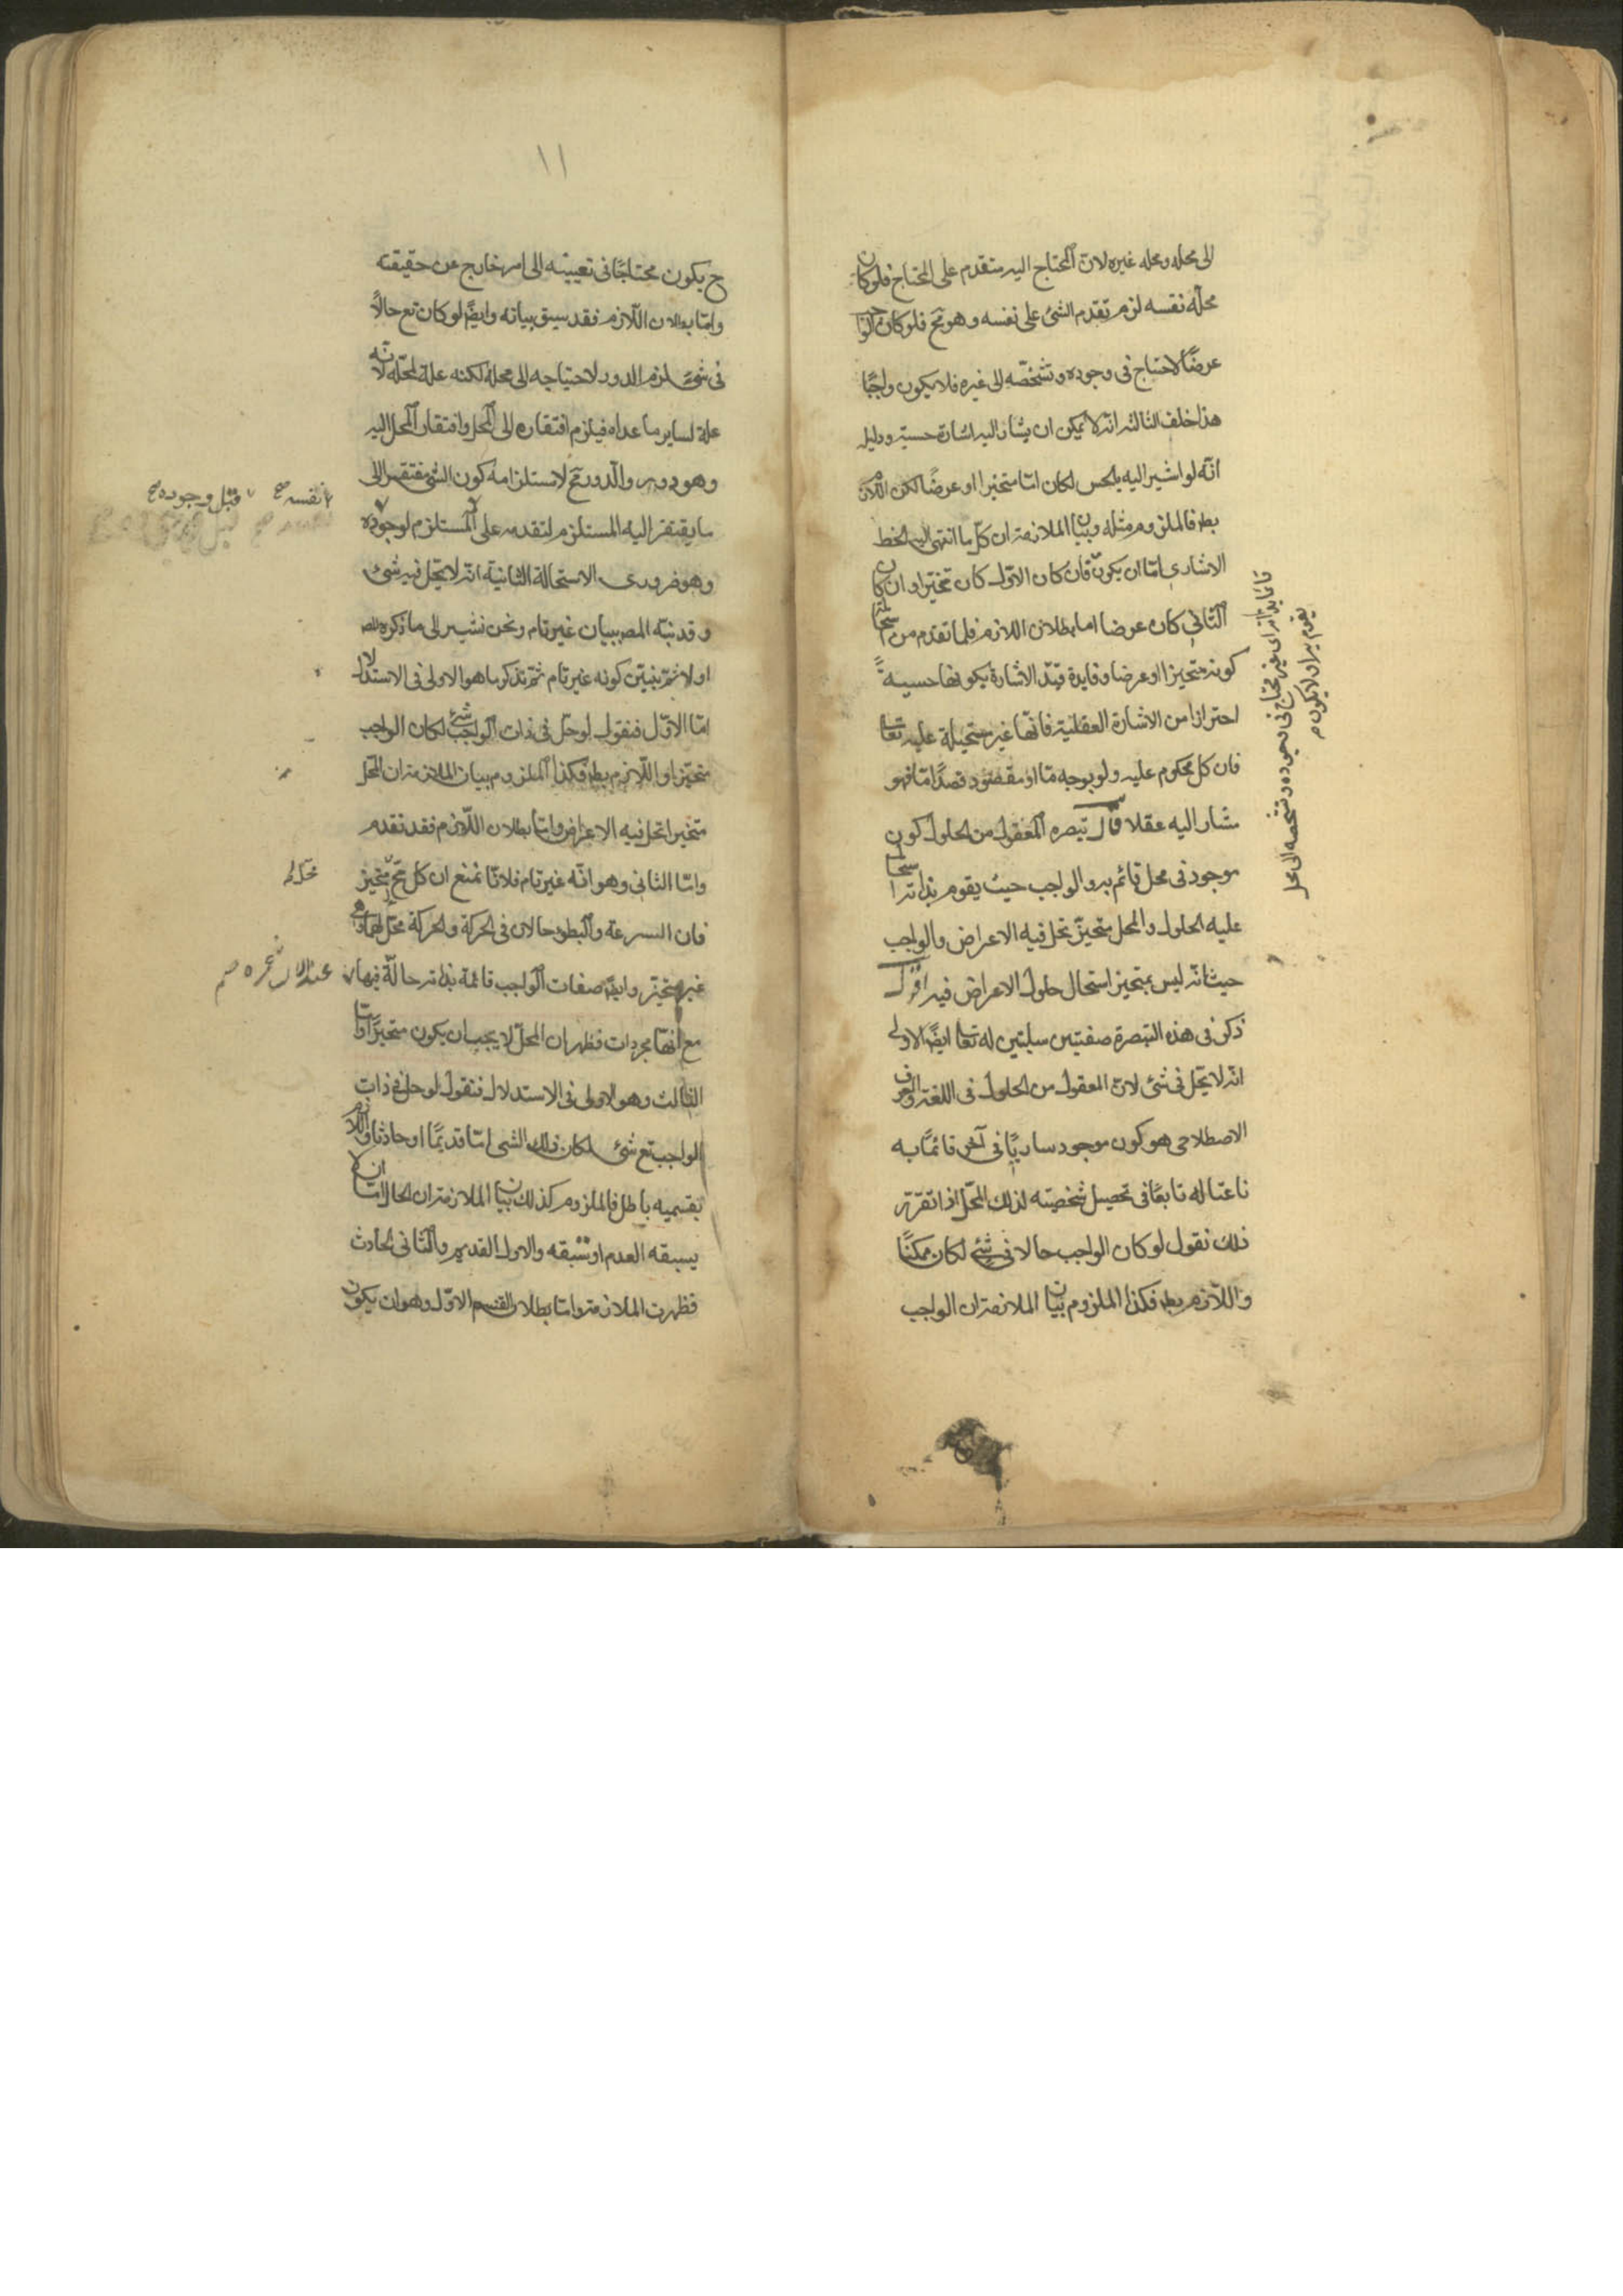 الى محله ومحله غيره لان المحتاج اليه متقدم على المحتاج فلو كان
محله نفسه لزم تقدم الشئ على نفسه وهو مح فلو كان الواجب
عرضًا لاحتاج فى وجوده وتشخصه الى غيره فلا يكون واجبًا
هذا خلف الثالثه انه لا يمكن ان يشار اليه اشارة حسية ودليله
انه لو اشير اليه بالحس لكان اما متحيزا او عرضًا لكن اللازم
بط فالملزوم مثله وبيان الملازمة ان كل ما انتهى اليه الخط
الاشارى اما ان يكون فان كان الاول كان متحيزا وان كان
الثانى كان عرضا اما بطلان اللازم فلما تقدم من استحالة
كونه متحيزا او عرضا وفايدة قيد الاشارة بكونها حسية
احترازا من الاشارة العقلية فانها غير مستحيلة عليه تعالى
فان كل محكوم عليه ولو بوجه ما او مقصود قصدًا ما فهو
مشار اليه عقلا قال تبصره المعقول من الحلول كون
موجود فى محل قائم به والواجب حيث يقوم بذاته استحال
عليه الحلول والمحل متحيز تحل فيه الاعراض والواجب
حيث انه ليس بمتحيز استحال حلول الاعراض فيه اقول
ذكر فى هذه التبصرة صفتين سلبتين له تعالى ايضًا الاولى
انه لا يحل فى شئ لان المعقول من الحلول فى اللغة والعرف
الاصطلاحى هو كون موجود ساريًا فى آخر قائمًا به
ناعتا له تابعًا فى تحصيل شخصيته لذلك المحل اذا تقرر
ذلك نقول لو كان الواجب حالا فى شئ لكان ممكنًا
واللازم بط فكذا الملزوم بيان الملازمة ان الواجب
قائما بذاته اى غير محتاج فى وجوده وتشخصه الى محل
يقوم به او لا يكون م
١١
ح يكون محتاجًا فى تعيينه الى امر خارج عن حقيقته
واما بطلان اللازم فقد سبق بيانه وايضًا لو كان تع حالًا
فى شئ لزم الدور لاحتياجه الى محله لكنه علة لمحله لانه
علة لساير ما عداه فيلزم افتقاره الى المحل وافتقار المحل اليه
وهو دور والدور مح لاستلزامه كون الشئ مفتقر الى
نفسه صح قبل وجوده صح
ما يفتقر اليه المستلزم لتقدمه على المستلزم لوجوده
وهو ضرورى الاستحالة الثانية انه لا يحل فيه شئ
وقد نبه المص ببيان غير تام ونحن نشير الى ما ذكره المص
اولا ثم نبين كونه غير تام ثم نذكر ما هو الاولى فى الاستدلال
اما الاول فنقول لو حل فى ذات الواجب شئ لكان الواجب
متحيزا واللازم بط فكذا الملزوم بيان الملازمة ان المحل
متحيز تحل فيه الاعراض واما بطلان اللازم فقد تقدم
واما الثانى وهو انه غير تام فلانا نمنع ان كل محل متحيز
فان السرعة والبطوء حالان فى الحركة والحركة محل لهما وهى
غير متحيز وايضًا صفات الواجب قائمة بذاته حالة فيها
مع انها مجردات فظهر ان المحل لا يجب ان يكون متحيزًا واما
الثالث وهو الاولى فى الاستدلال فنقول لو حل فى ذات
الواجب تع شئ لكان ذلك الشئ اما قديمًا او حادثا واللازم
بقسميه باطل فالملزوم كذلك بيان الملازمة ان الحال اما ان لا
يسبقه العدم او تسبقه والاول القديم والثانى الحادث
فظهرت الملازمة واما بطلان القسم الاول وهو ان يكون